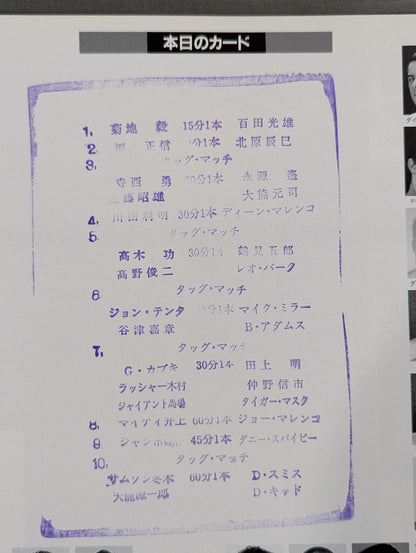 本日のカード
1. 菊地 毅 15分1本 百田光雄
2. 正信 分1本 北原辰巳
3. タッグ・マッチ
寺西 勇 30分1本 永源 遙
佐藤昭雄 大熊元司
4. 川田利明 30分1本 ディーン・マレンコ
5. タッグ・マッチ
高木 功 30分1本 鶴見五郎
高野俊二 レオ・バーク
6 タッグ・マッチ
ジョン・テンタ 30分1本 マイク・ミラー
谷津嘉章 B・アダムス
7. タッグ・マッチ
G・カブキ 30分1本 田上 明
ラッシャー木村 仲野信市
ジャイアント馬場 タイガー・マスク
8. マイティ井上 60分1本 ジョー・マレンコ
9. ジャンボ 45分1本 ダニー・スパイビー
10. タッグ・マッチ
サムソン冬木 60分1本 D・スミス
天龍源一郎 D・キッド